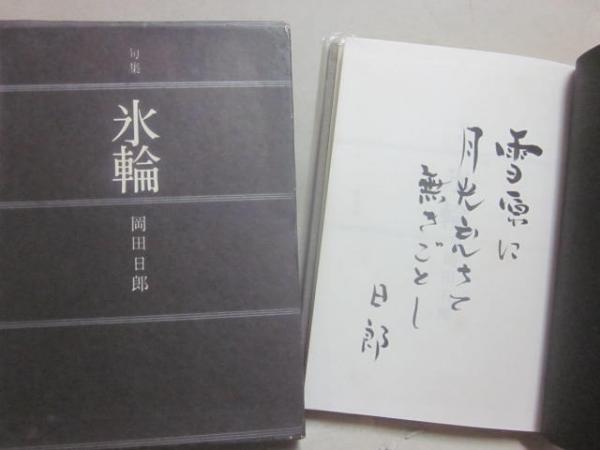 句集
氷輪
岡田日郎
雪原に
月光充ちて
無きごとし
日郎